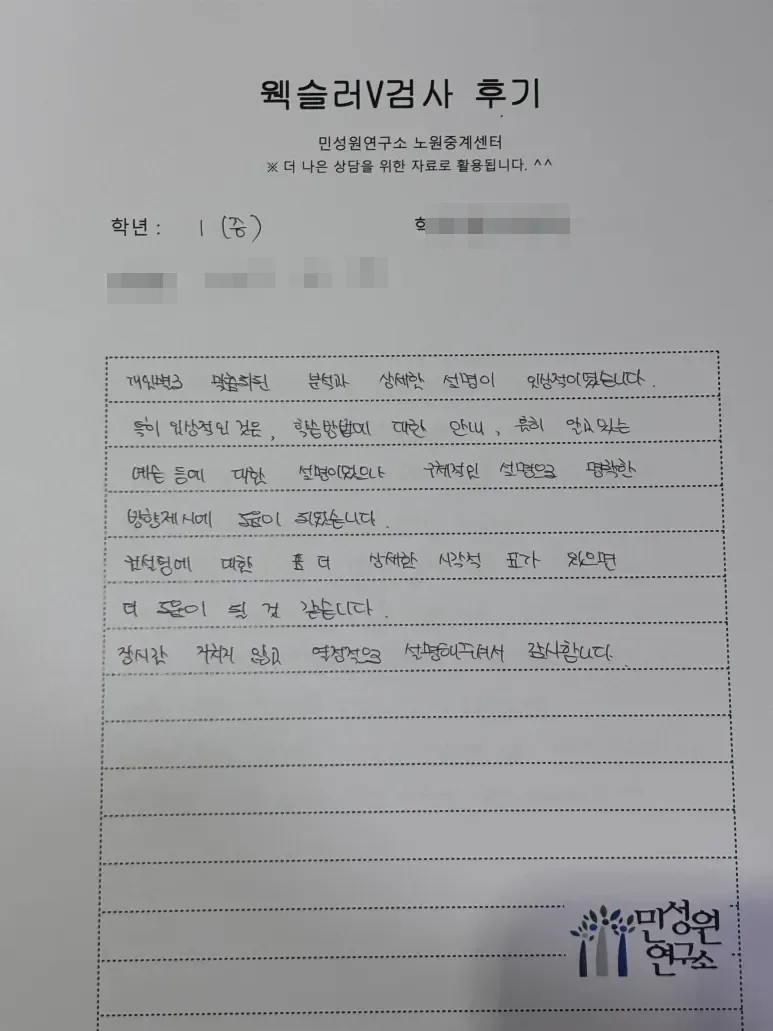 웩슬러V검사 후기
민성원연구소 노원중계센터
※ 더 나은 상담을 위한 자료로 활용됩니다. ^^
학년 : 1 (중)
개인별로 맞춤화된 분석과 상세한 설명이 인상적이었습니다.
특히 인상적인 것은, 학습방법에 대한 안내, 특히 알고있는
예습 등에 대한 설명이었으나 구체적인 설명으로 명확한
방향제시에 도움이 되었습니다.
컨설팅에 대한 좀 더 상세한 시각적 표가 있으면
더 도움이 될 것 같습니다.
장시간 지치지 않고 열정적으로 설명해주셔서 감사합니다.
민성원
연구소